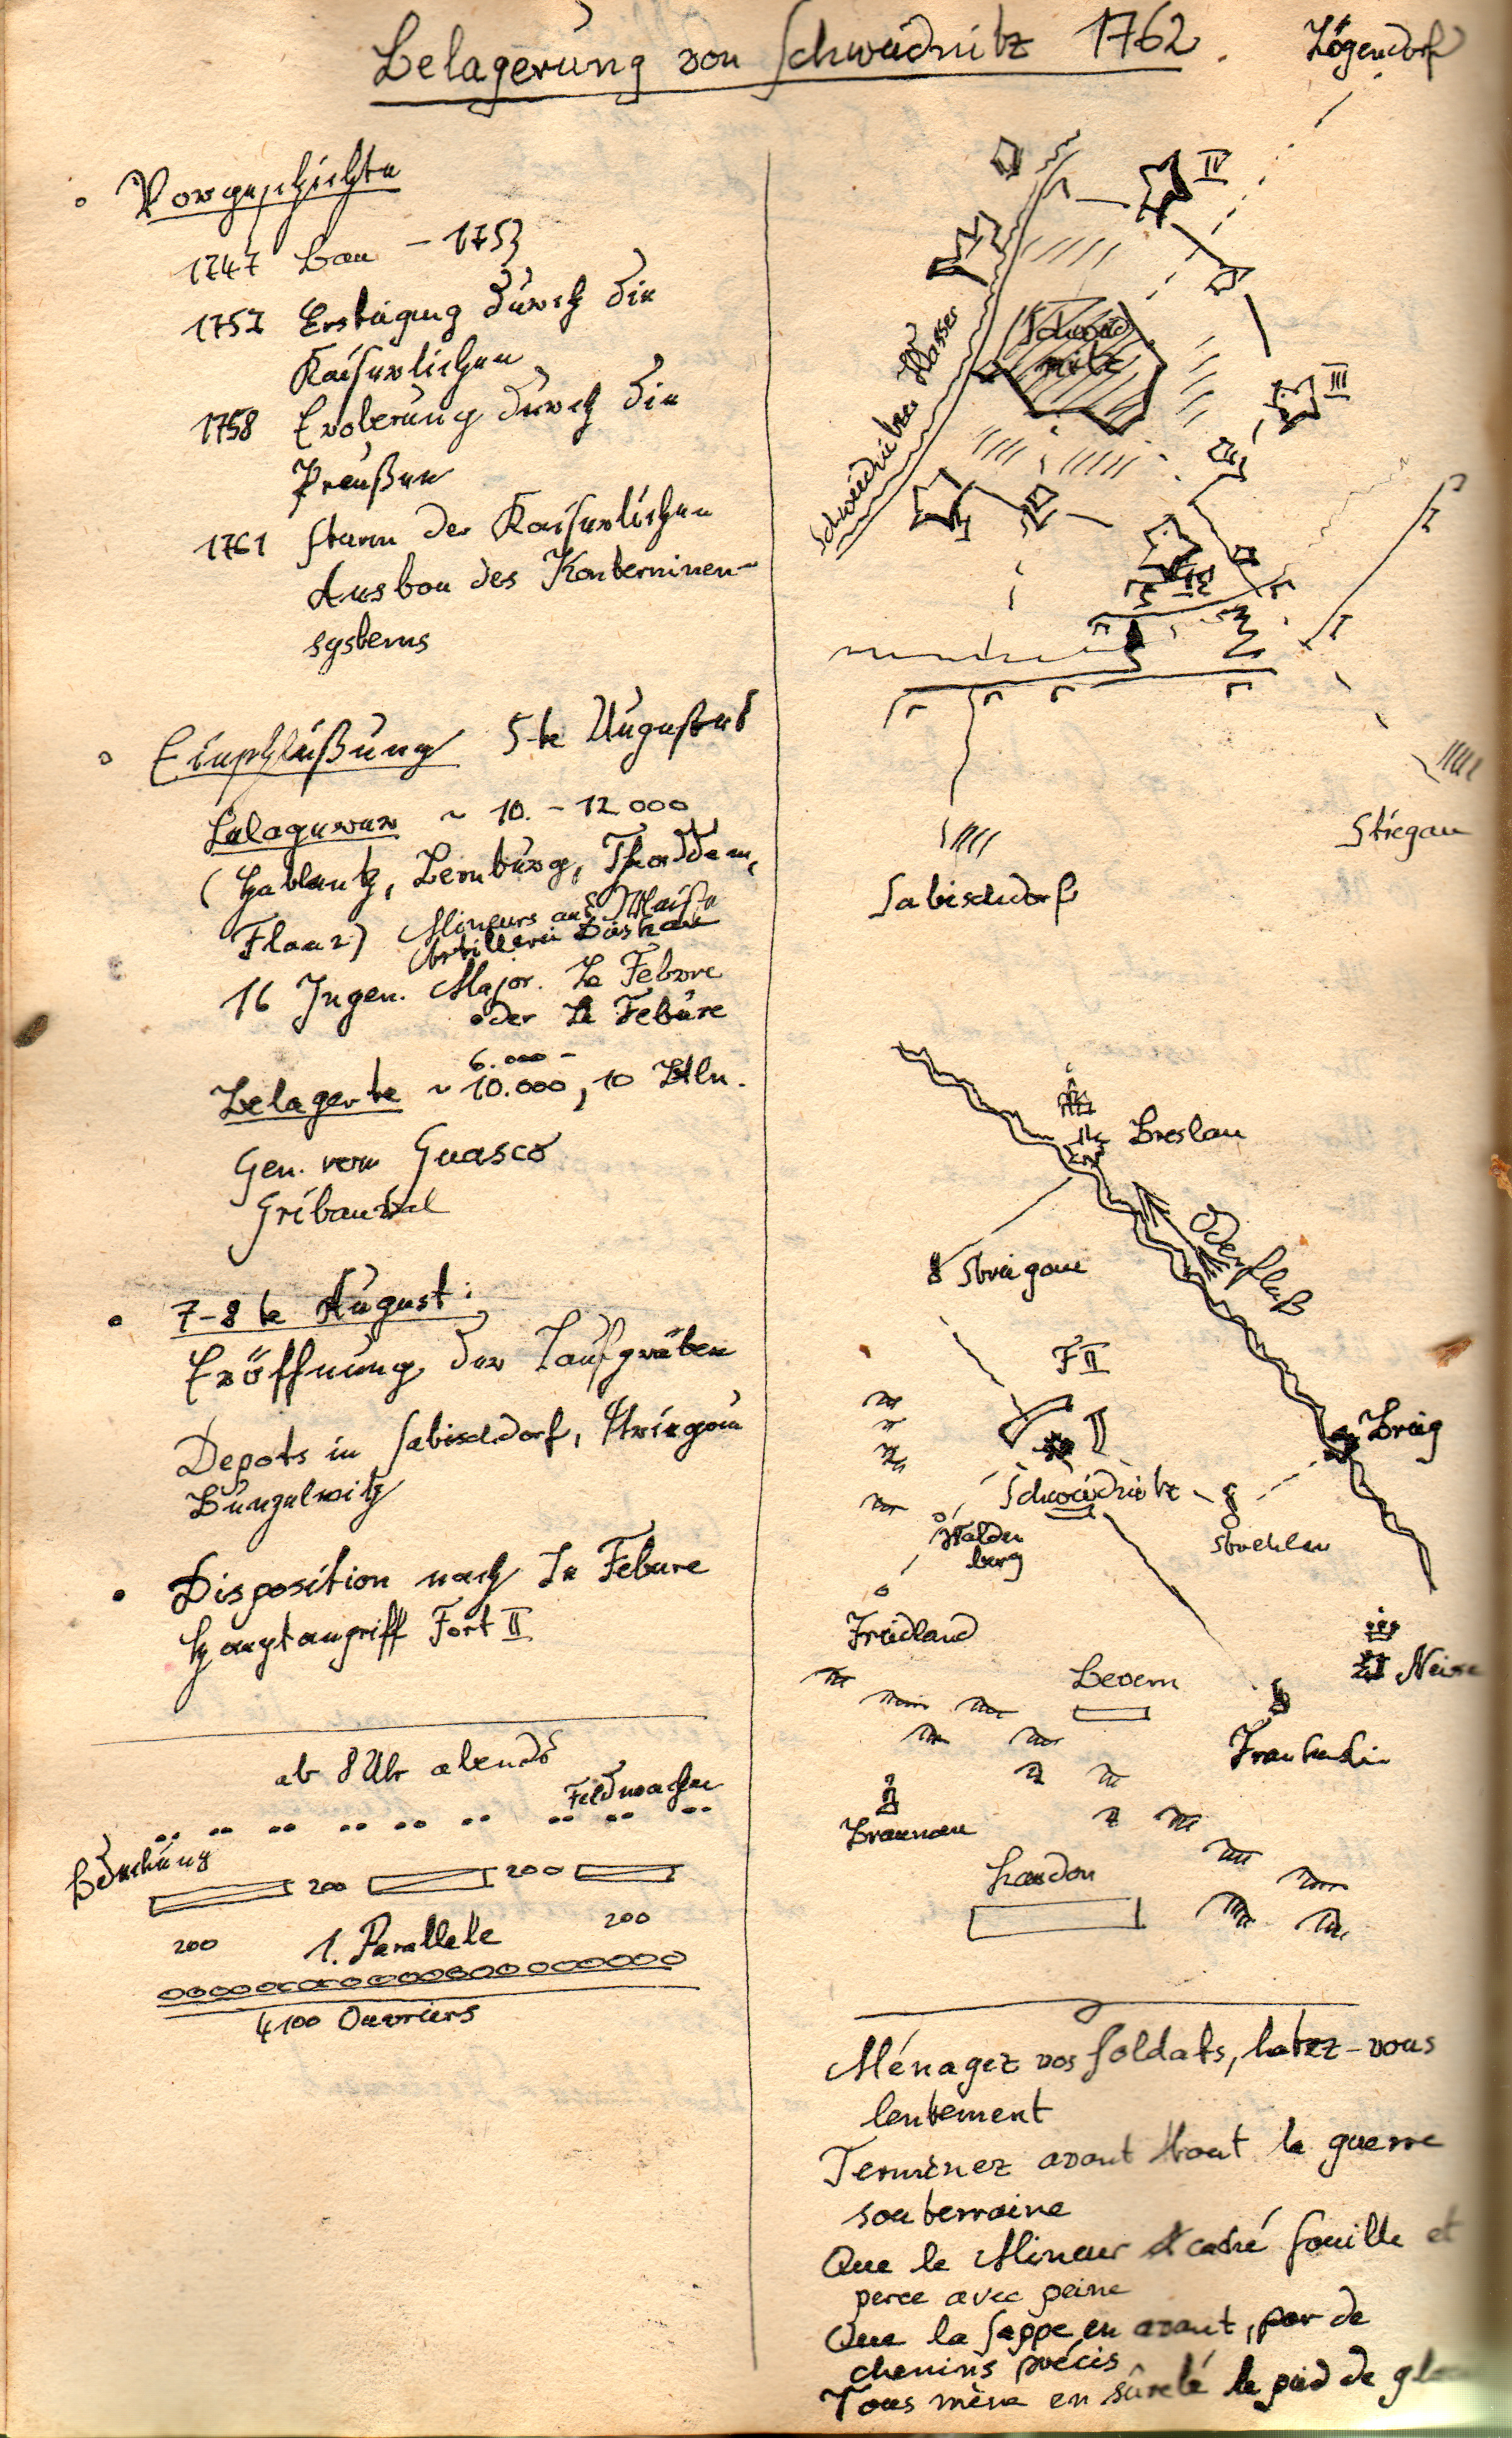 Belagerung von Schweidnitz 1762.
Vorgeschichte
1747 Bau - 1753
1757 Ersteigung durch die
Kaiserlichen
1758 Eroberung durch die
Preußen
1761 Sturm der Kaiserlichen
Ausbau des Konterminen-
systems
Einschlüßung 5-te Augustus
Belagerer ~ 10.-12000
Lernburg, Thadden,
Mineurs aus Neiße
Artillerie Dieskau
16 Ingen. Major. Le Febvre
oder Le Febure
6.000 -
Belagerte ~ 10.000, 10 Btln.
Gen. von Guasco
Gribauval
7-8 te August:
Eröffnung der Laufgräben
Depots in Sabischdorf, Striegau
Bunzelwitz
Disposition nach Le Febure
Hauptangriff Fort II
ab 8 Uhr abends
Feldwachen
Bedeckung
200 200
200 1. Parallele 200
4100 Ouvriers
Zögendorf
IV
Schweidnitzer Wasser
Schweid
nitz
III
I
II
I
I
Striegau
Sabischdorf
Breslau
Oderfluß
Striegau
F II
II
Brieg
Schweidnitz
Strehlen
Walden
burg
Friedland
Neisse
Bevern
Frankenstein
Braunau
Laudon
Ménagez vos soldats, batez-vous
lentement
Terminez avant tout la guerre
souterraine
Que le Mineur caché fouille et
perce avec peine
Que la sappe en avant, par de
chemins précis
Vous mène en sûreté le pied de